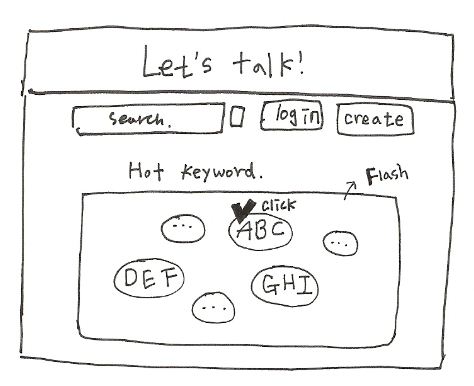 Let's talk!
search. login create
Hot keyword. Flash
click
... ABC ...
DEF GHI
...